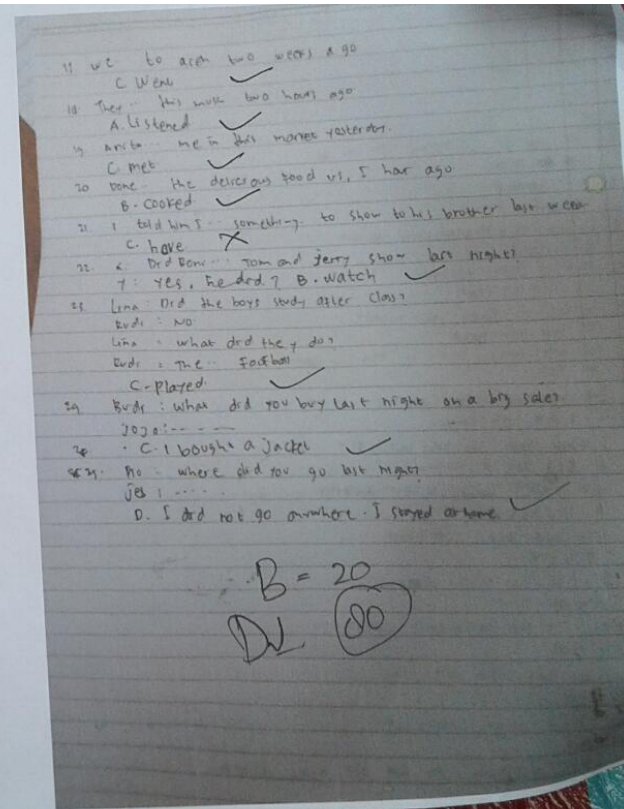 17 we to aceh two weeks ago
C Went
18 They .. this music two hours ago
A. Listened
19 Anita .. me in this market yesterday.
C. met
20 Done .. the delicious food us, 5 hour ago
B. cooked
21 I told him I .. something to show to his brother last week
C. have
22. x: Did Doni ... Tom and Jerry show last night?
y: Yes, he did. ? B. watch
23. Lina : Did the boys study after class?
Rudi : No
Lina : what did they do?
Rudi : The .. football
C. played.
24 Budi : what did you buy last night on a big sale?
Jojo : - - - -
C. I bought a jacket
25. Where did you go last night?
Jes : .....
D. I did not go anywhere. I stayed at home
B = 20
80